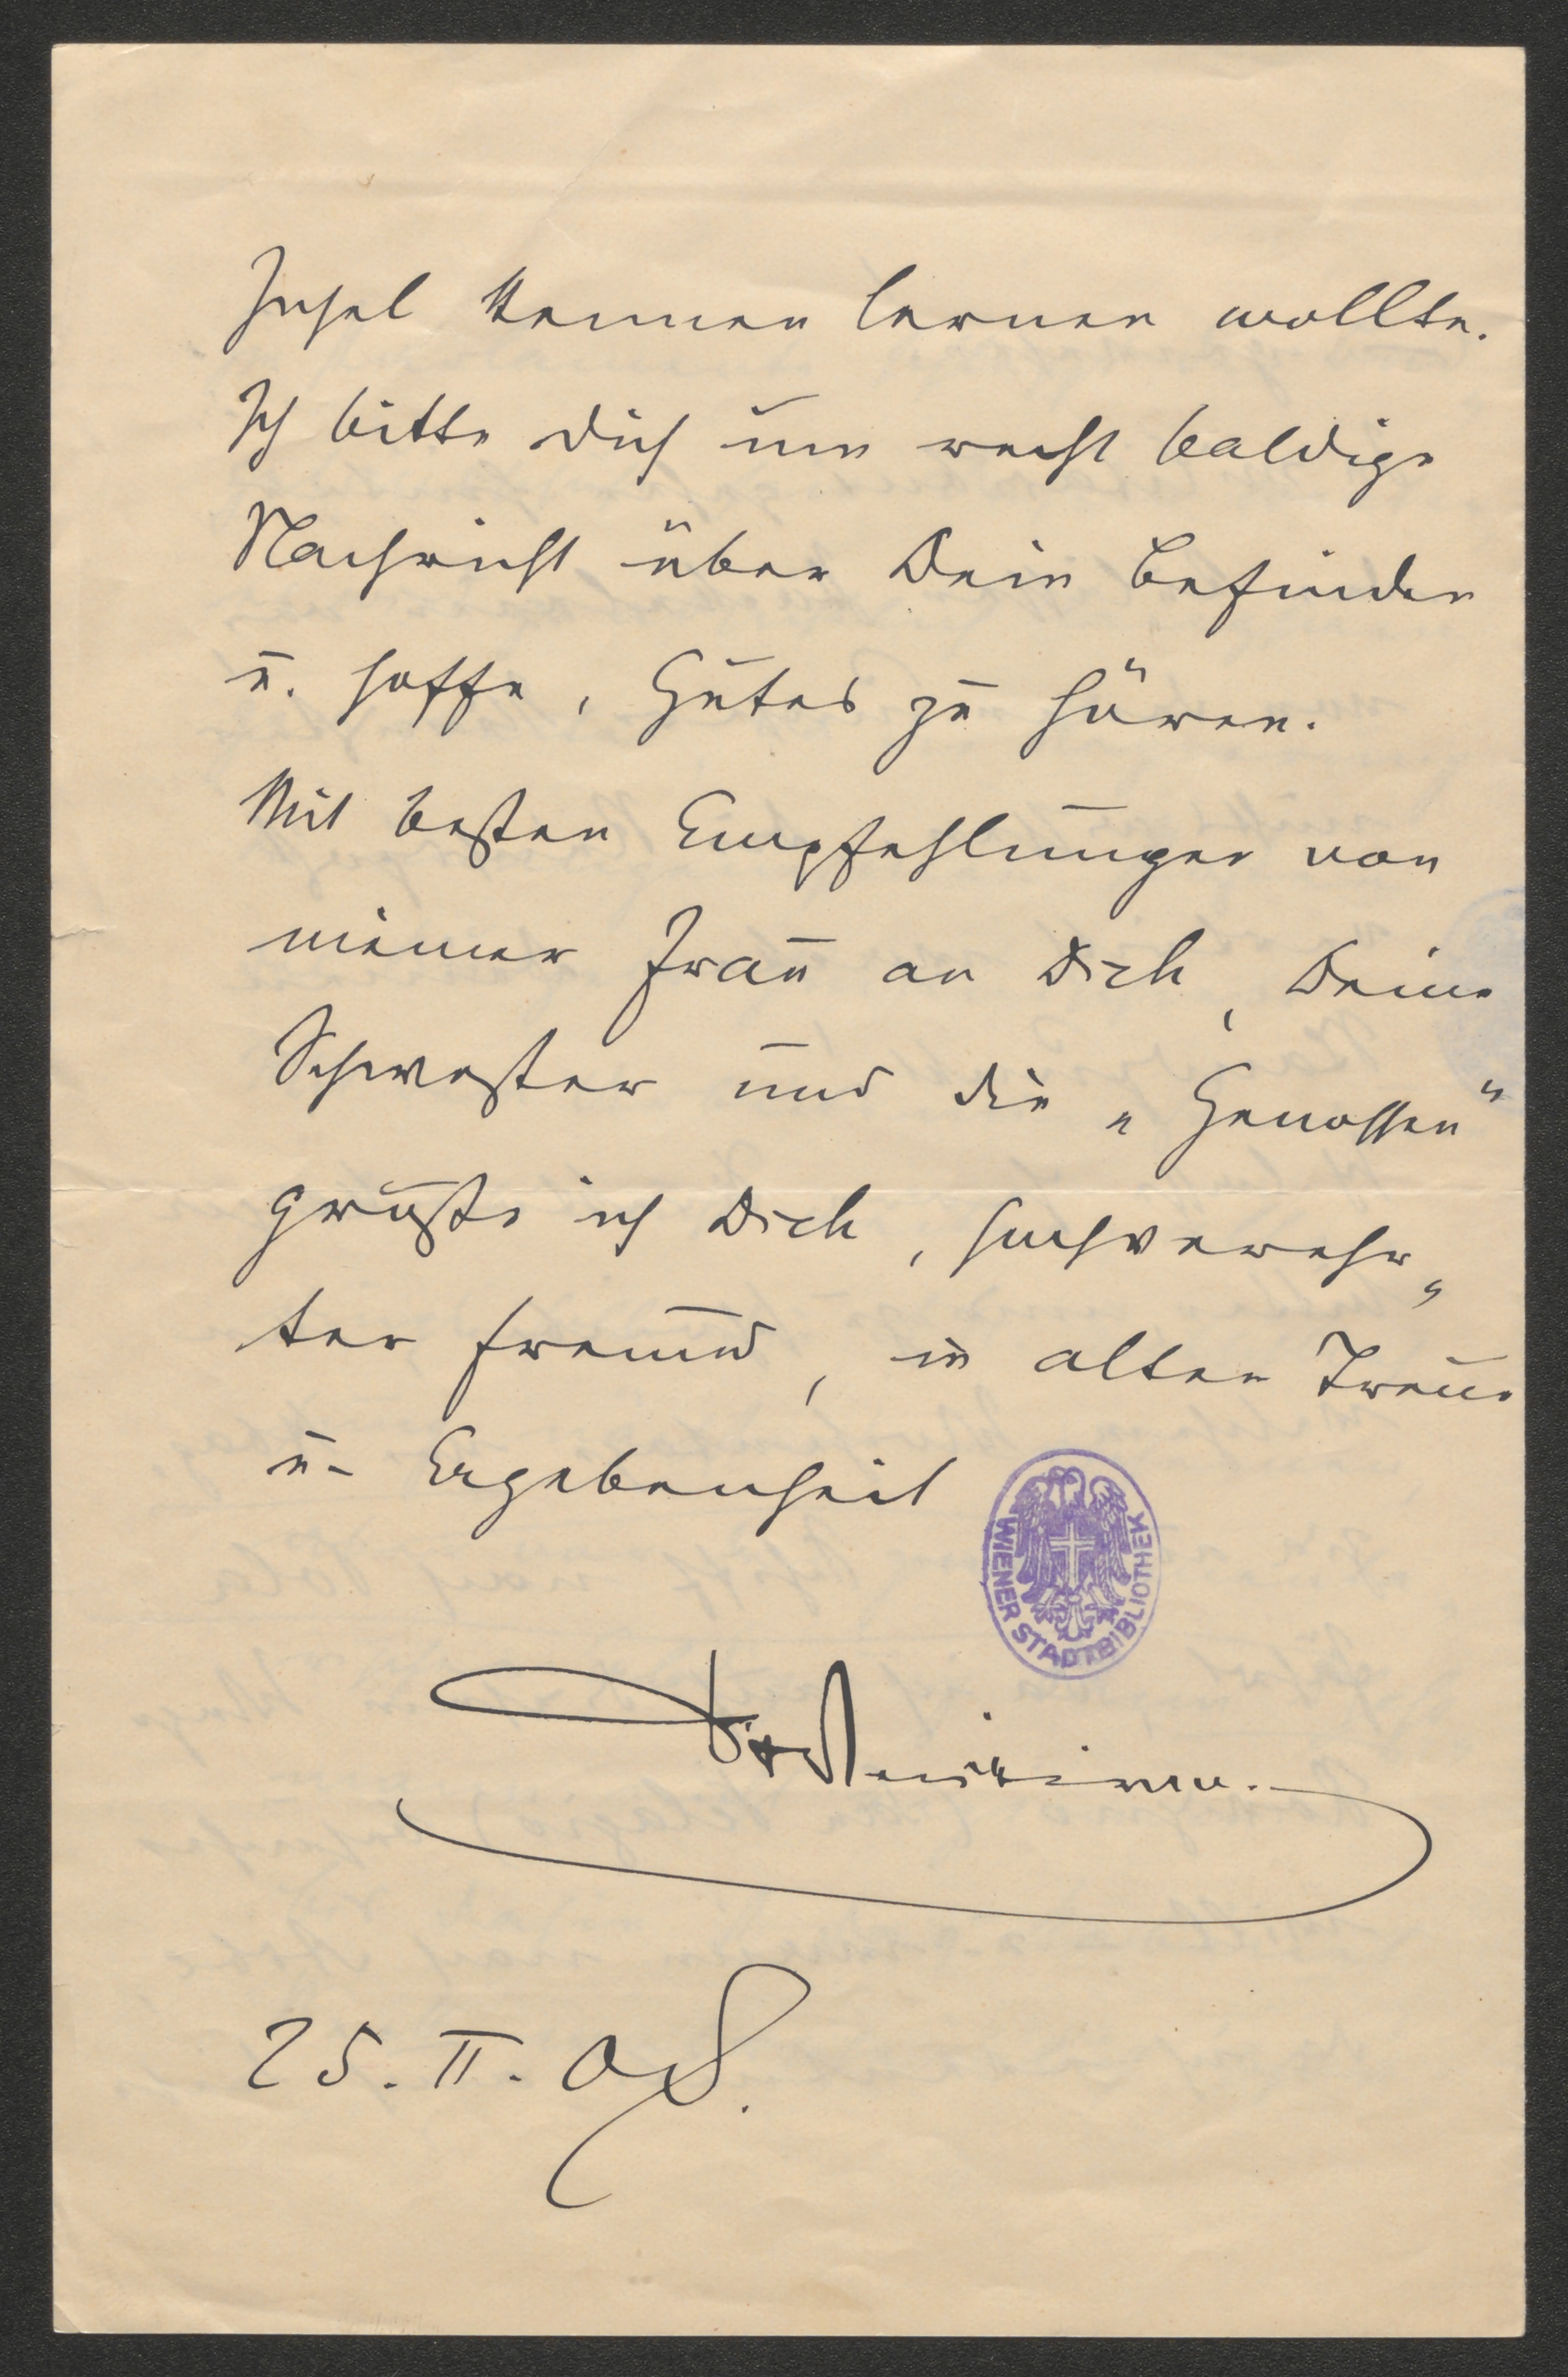 Insel kennen lernen wollte.
Ich bitte Dich um recht baldige
Nachricht über Dein Befinden
u. hoffe, Gutes zu hören.
Mit besten Empfehlungen von
meiner Frau an Dich, Deine
Schwester und die „Genossen“
grüßt ich Dich, hochverehr„
ter Freund, in alter Treue
u. Ergebenheit
WIENER STADTBIBLIOTHEK
25. II. 08.